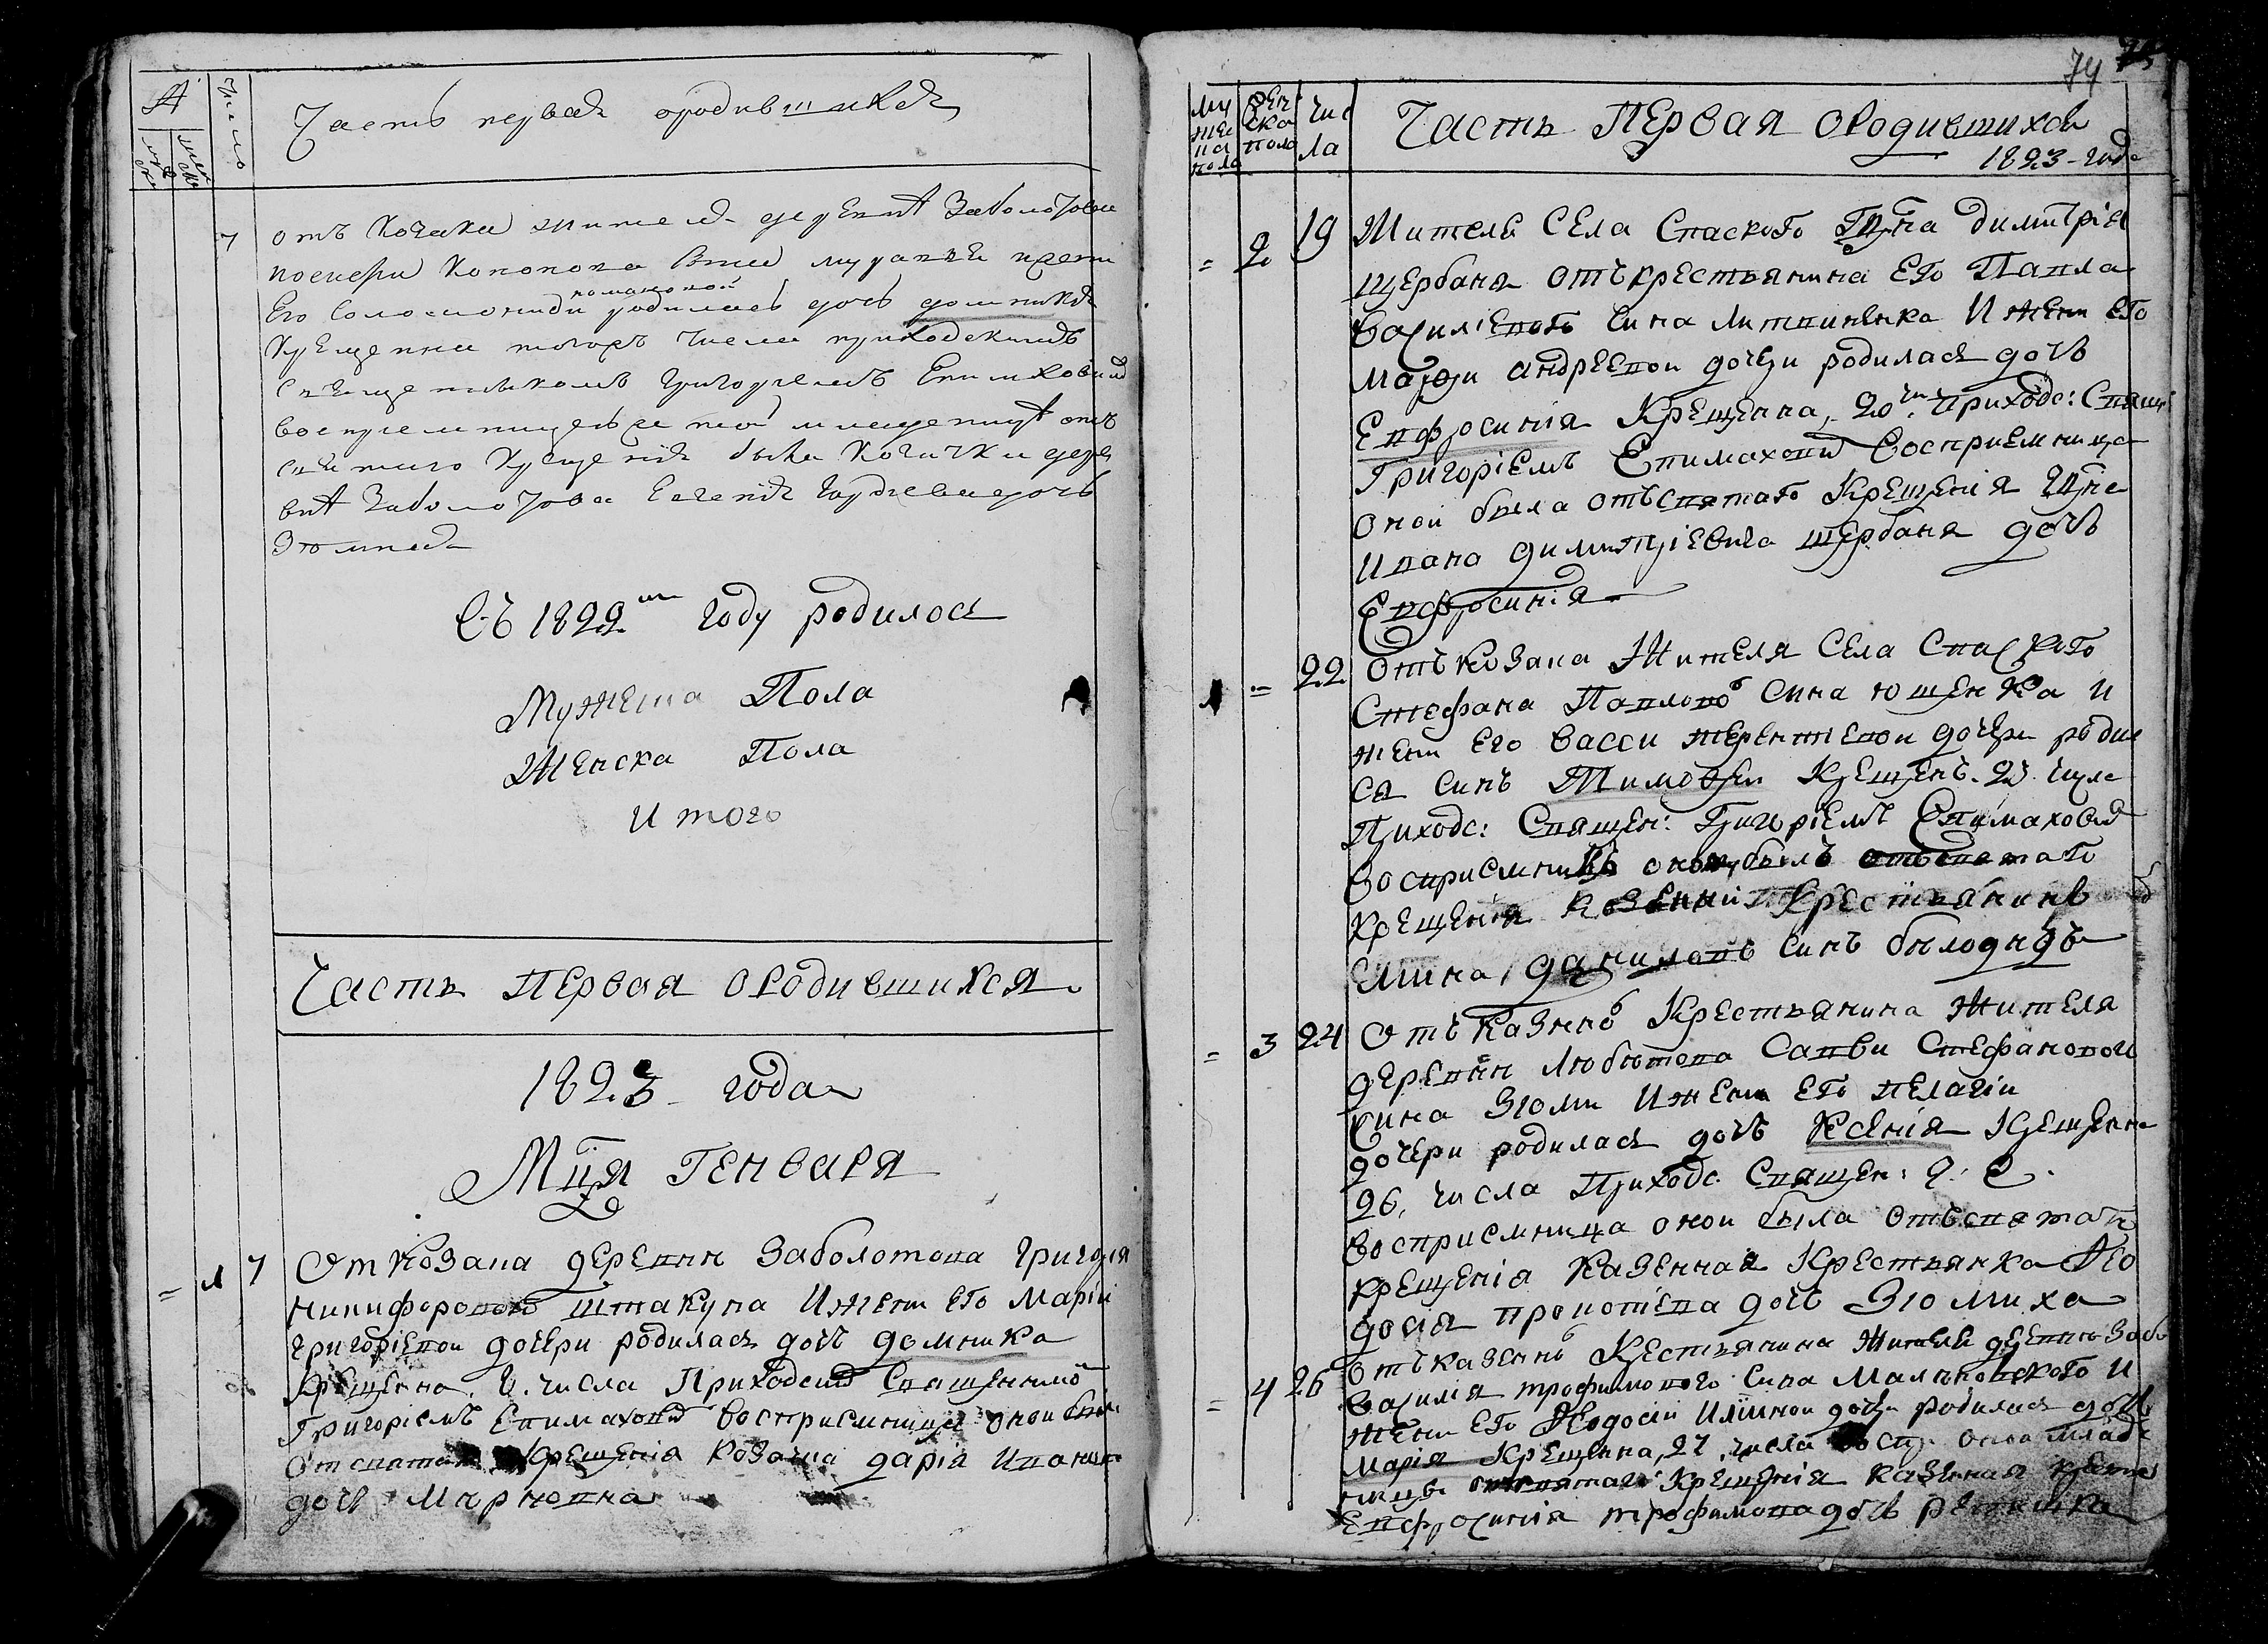 Часть первая о родившихся
Число
7
отъ козака жителя деревнѣ Заболотова
его Соломониди родилась дочь Домникія
романовой
Крещенна тогожъ числа приходскимъ
священникомъ Григориемъ Епимаховимъ
воспреемницею младенцу отъ
святаго Крещенія была козачка дере
внѣ Заболотова Евгенія дочь
Въ 1822м году родилося
Мужеска Пола
Женска Пола
И того
Часть Первая о Родившихся
1823 года
Мца Генваря
= 1 7 От козака деревни Заболотова Григория
Никифорового Штакуна и жени его Марии
Григориевои дочери родилася дочь Домника
Крещенна 8. числа Приходским Священником
Григориемъ Епимахови Восприемница онои была
От святаго Крещения козачка Дария Иванова
дочь Мирновна
74
Мужеска пола
Женска пола
Числа
Часть Первая о Родившихся
1823 года
= 2 19 Жителя Села Спаского Гдна Димитрія
Щербаня отъ крестьянина его Павла
Василіевого сина Литвиненка и жени его
Марфи Андреевои дочери родилася дочь
Евфросинія Крещенна, 20 Приходс: Свящ
Григоріемъ Епимахови Восприемница
онои была отъ святаго Крещенія Гдна
Ивана Димитріевича Щербаня дочь
Евфросинія
1 = 22 Отъ козака Жителя Села Спаского
Стефана Павлово Сина Ющенка и
жени его Васси Терентіевои дочери роди
ся синъ Тимофеи Крещенъ 23 числа
Приходс: Священ: Григоріемъ Епимахови
Восприемникъ оному былъ отъ святаго
Крещенія Козенній Крестьянинъ
Данилавъ синъ Билодидъ
= 3 24 Отъ казенно Крестьянина Жителя
деревни Любитова Савви Стефановои
сина Зюми и жени его Пелагіи
дочери родилася дочь Ксенія Крещенна
26, числа Приходс. Священ: Г: Е.
Восприемница онои была отъ святаго
Крещенія Казенная Крестьянка Фео
досія Прокопіева дочь Зюмиха
= 4 26 Отъ казенно Крестьянина Жителя деревни Забо
Василия Трофимового Сина Мальковского и
жени его Феодосіи Иліинои дочери родилася дочь
Марія Крещенна, 27, числа Воспр онои млад
ницѣ от святаго Крещенія казенная крестя
Евфросинія Трофимова дочь